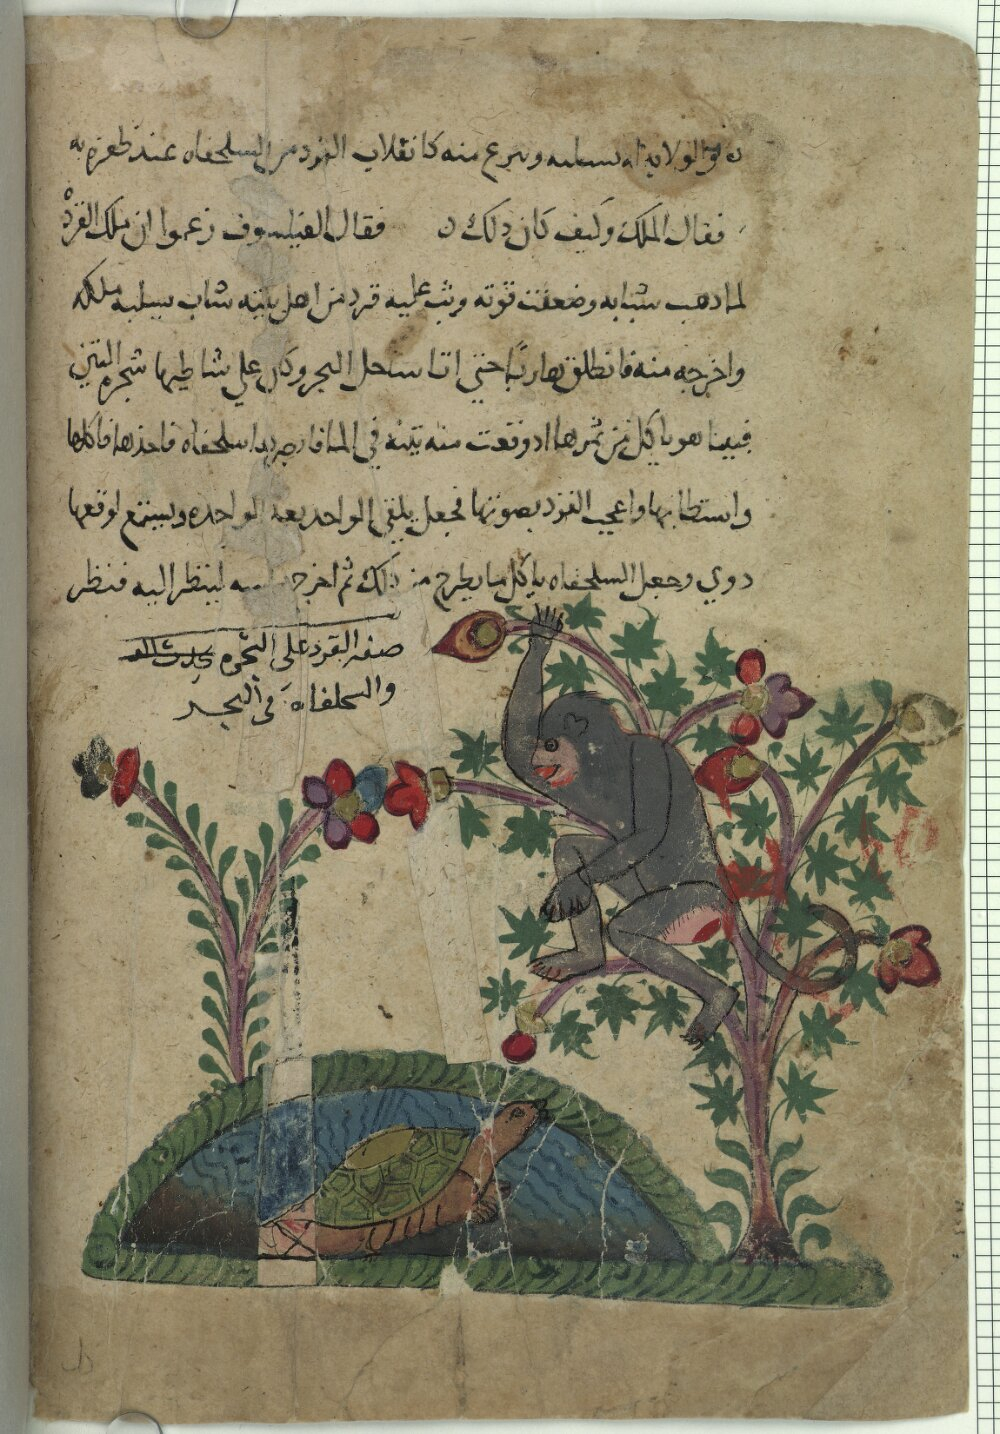 منه كانقلاب القرد من السلحفاه عند ظفره به
فقال الملك وكيف كان ذلك ن فقال الفيلسوف زعموا ان ملك القرده
لما ذهب شبابه وضعفت قوته وثب عليه قرد من اهل بيته شاب يسلبه ملكه
واخرجه منه فانطلق هاربًا حتى اتا ساحل البحر وكان على شاطيها شجره التين
فبينا هو ياكل من ثمرها اد وقعت منه تينه في الما سلحفاه فاخذها فاكلها
واستطابها واعجب القرد بصوتها فجعل يلقى الواحد بعد الواحده ويستمع لوقعها
دوي وجعل السلحفاه ياكل ما يطرح من ذلك ثم اخرج لينظر اليه فنظر
صفه القرد على الشجره
والسلحفاه فى البحر